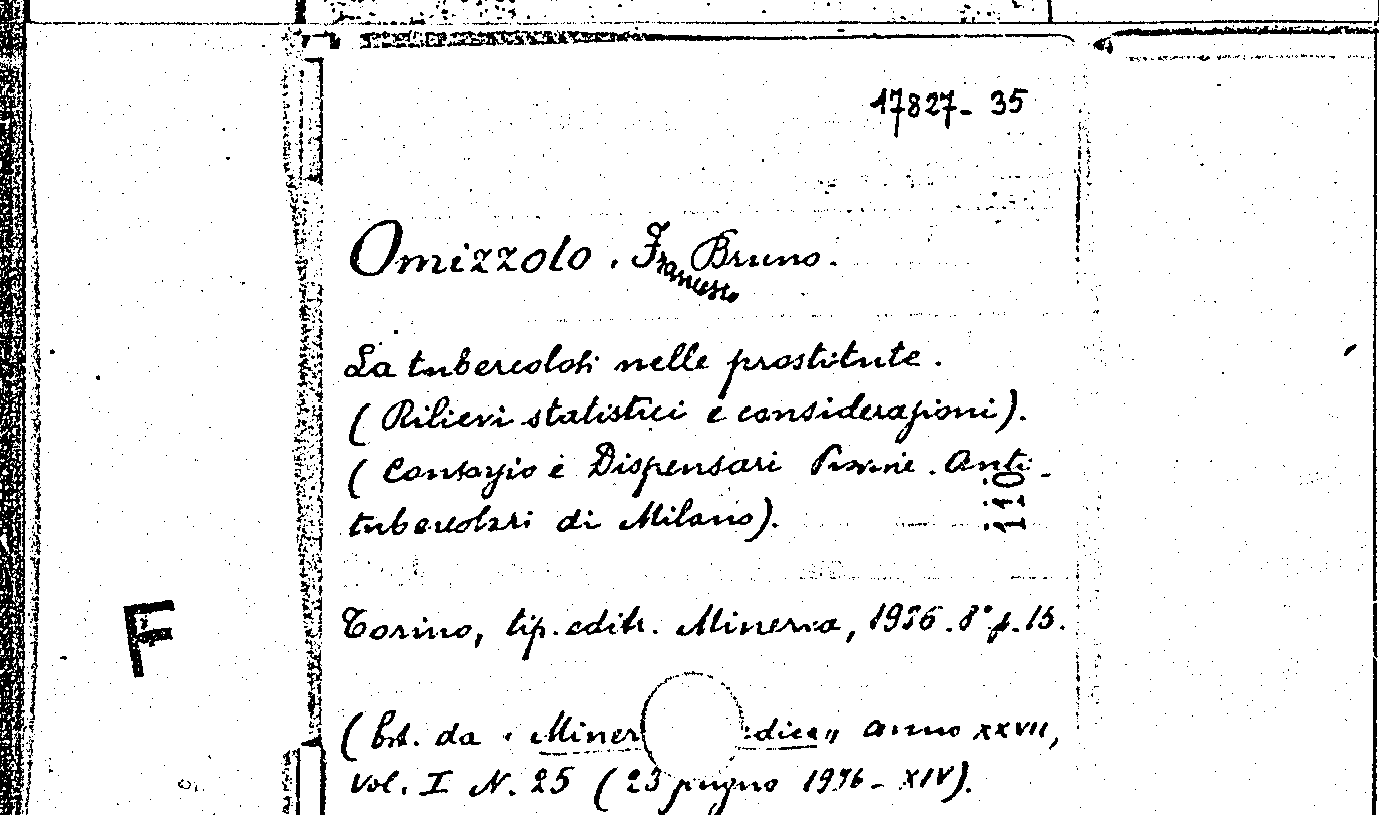 17827- 35
Omizzolo. Francesco Bruno.
La tubercolosi nelle prostitute.
(Rilievi statistici e considerazioni).
(Consorzio e Dispensari Provinc. Anti-
110
tubercolari di Milano).
Torino, tip. editr. Minerva, 1936. 8° p. 15.
F
(Est. da "Miner edica" anno XXVII,
Vol. I N. 25 (23 giugno 1936-XIV).